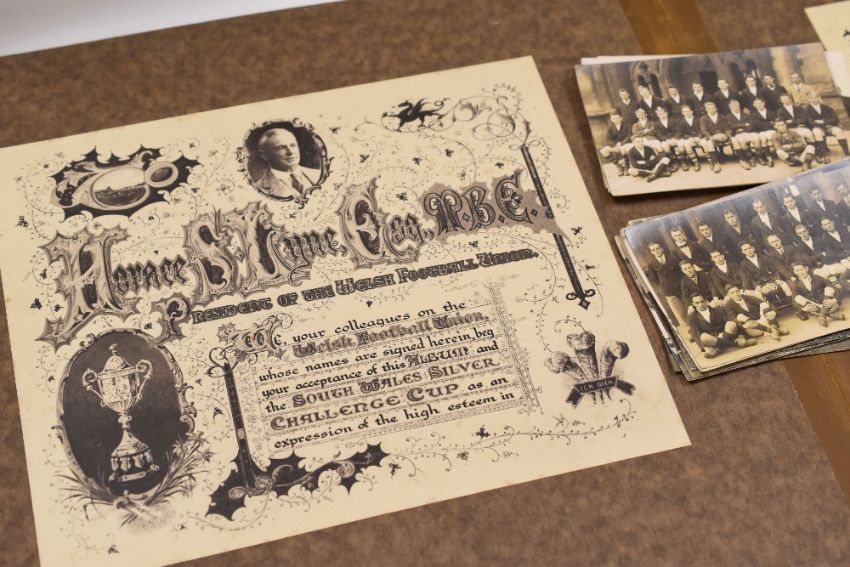 Horace S. Lyne Esq., M.B.E.
President of the Welsh Football Union.
We, your colleagues on the
Welsh Football Union,
whose names are signed herein, beg
your acceptance of this Album and
the South Wales Silver
Challenge Cup, as an
expression of the high esteem in
ICH DIEN